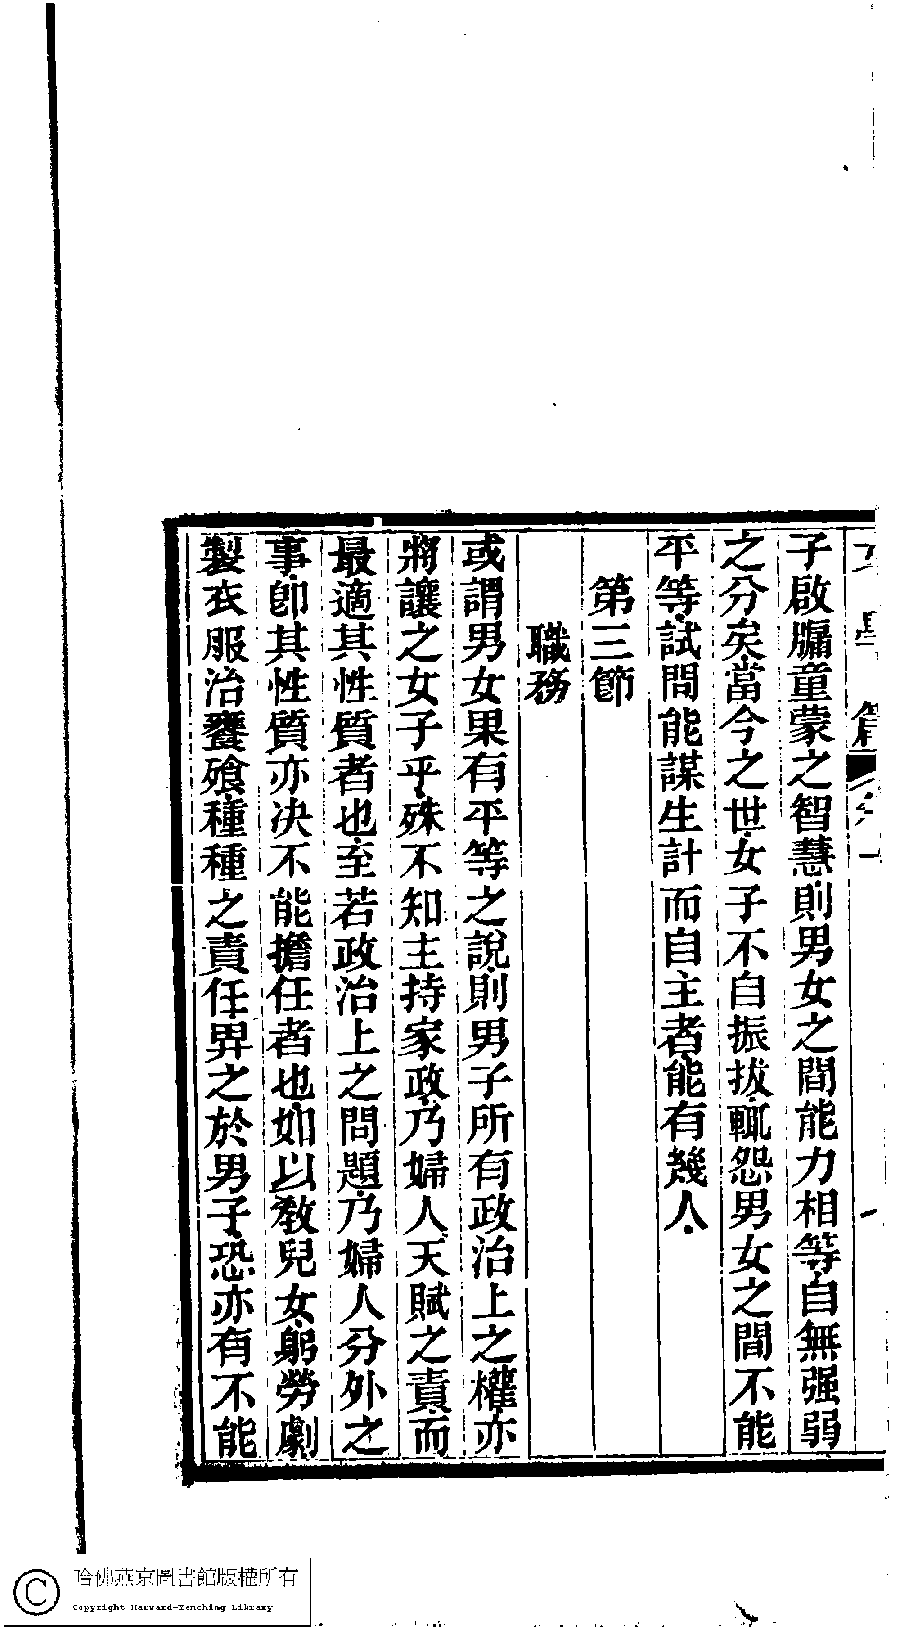 子啟牖童蒙之智慧則男女之間能力相等自無强弱
之分矣當今之世女子不自振拔輒怨男女之間不能
平等試問能謀生計而自主者能有幾人
第三節
職務
或謂男女果有平等之說則男子所有政治上之權亦
將讓之女子乎殊不知主持家政乃婦人天賦之責而
最適其性質者也至若政治上之問題乃婦人分外之
事卽其性質亦决不能擔任者也如以敎兒女躬勞劇
製衣服治饔飱種種之責任畀之於男子恐亦有不能
哈佛燕京圖書館版權所有
Copyright Harvard-Yenching Library